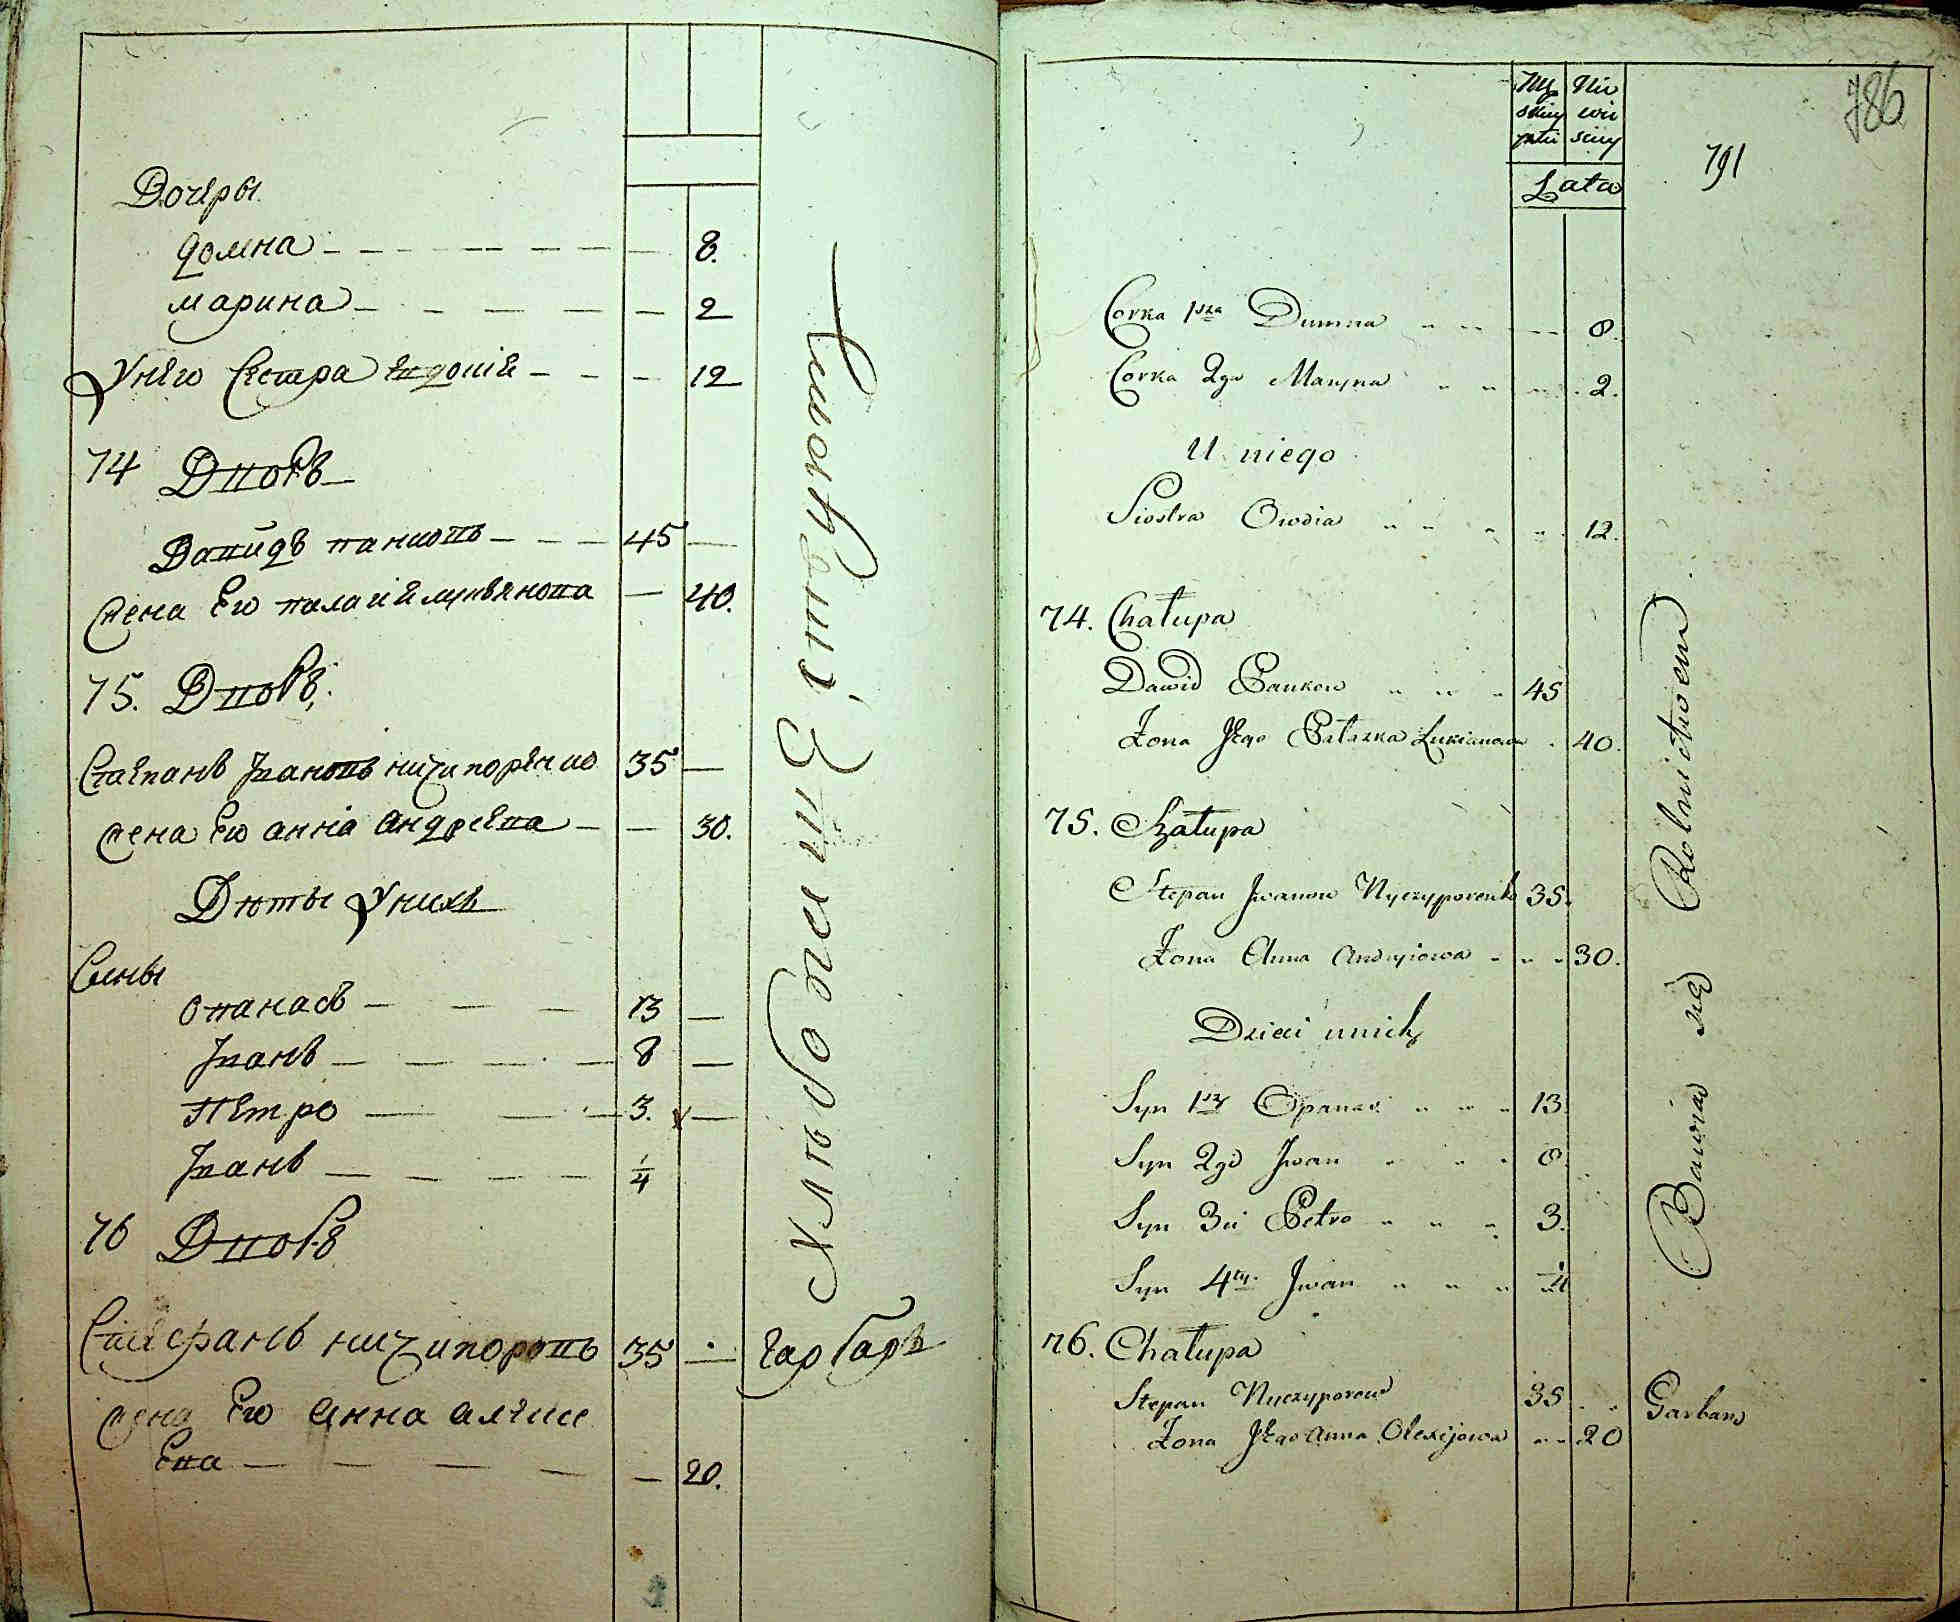 Дочеры
домна — — — — — — 8.
марина — — — — — — 2
Унего Сестра Евдокія — — — 12
74 Дворъ
Давидъ панковъ — — — 45 —
Жена Его палагія лукянова — 40.
75. Дворъ,
Степанъ Івановъ ничипоренко 35 —
Жена Его анна андреева — — 30.
Дѣты Унихъ
Сыны
опанасъ — — — 13 —
Іванъ — — — — 8 —
Петро — — — 3. —
Іванъ — — — — 1/4
76 Дворъ
Стефанъ ничипоровъ 35 —
Жена Его анна алексе
Ева — — — — — 20.
Хлѣбопашествуютъ
гарбаръ
786
791
Mę Nie
skiey wie
płci sciey
Lata
Corka 1sza Dumna 8.
Corka 2ga Maryna 2.
U niego
Siostra Owdia 12.
74. Chałupa
Dawid Pankow 45
Żona Jego Pałazka Lukianowa 40.
75. Chałupa
Stepan Iwanow Nyczyporenko 35.
Żona Anna Andryiowa 30.
Dzieci unich
Syn 1szy Opanas 13.
Syn 2gi Jwan 8.
Syn 3ci Petro 3.
Syn 4ty Jwan 1/4
76. Chałupa
Stepan Nyczyporow 35
Żona Jego Anna Olexijowa 20
Bawią się Rolnictwem
Garbarz